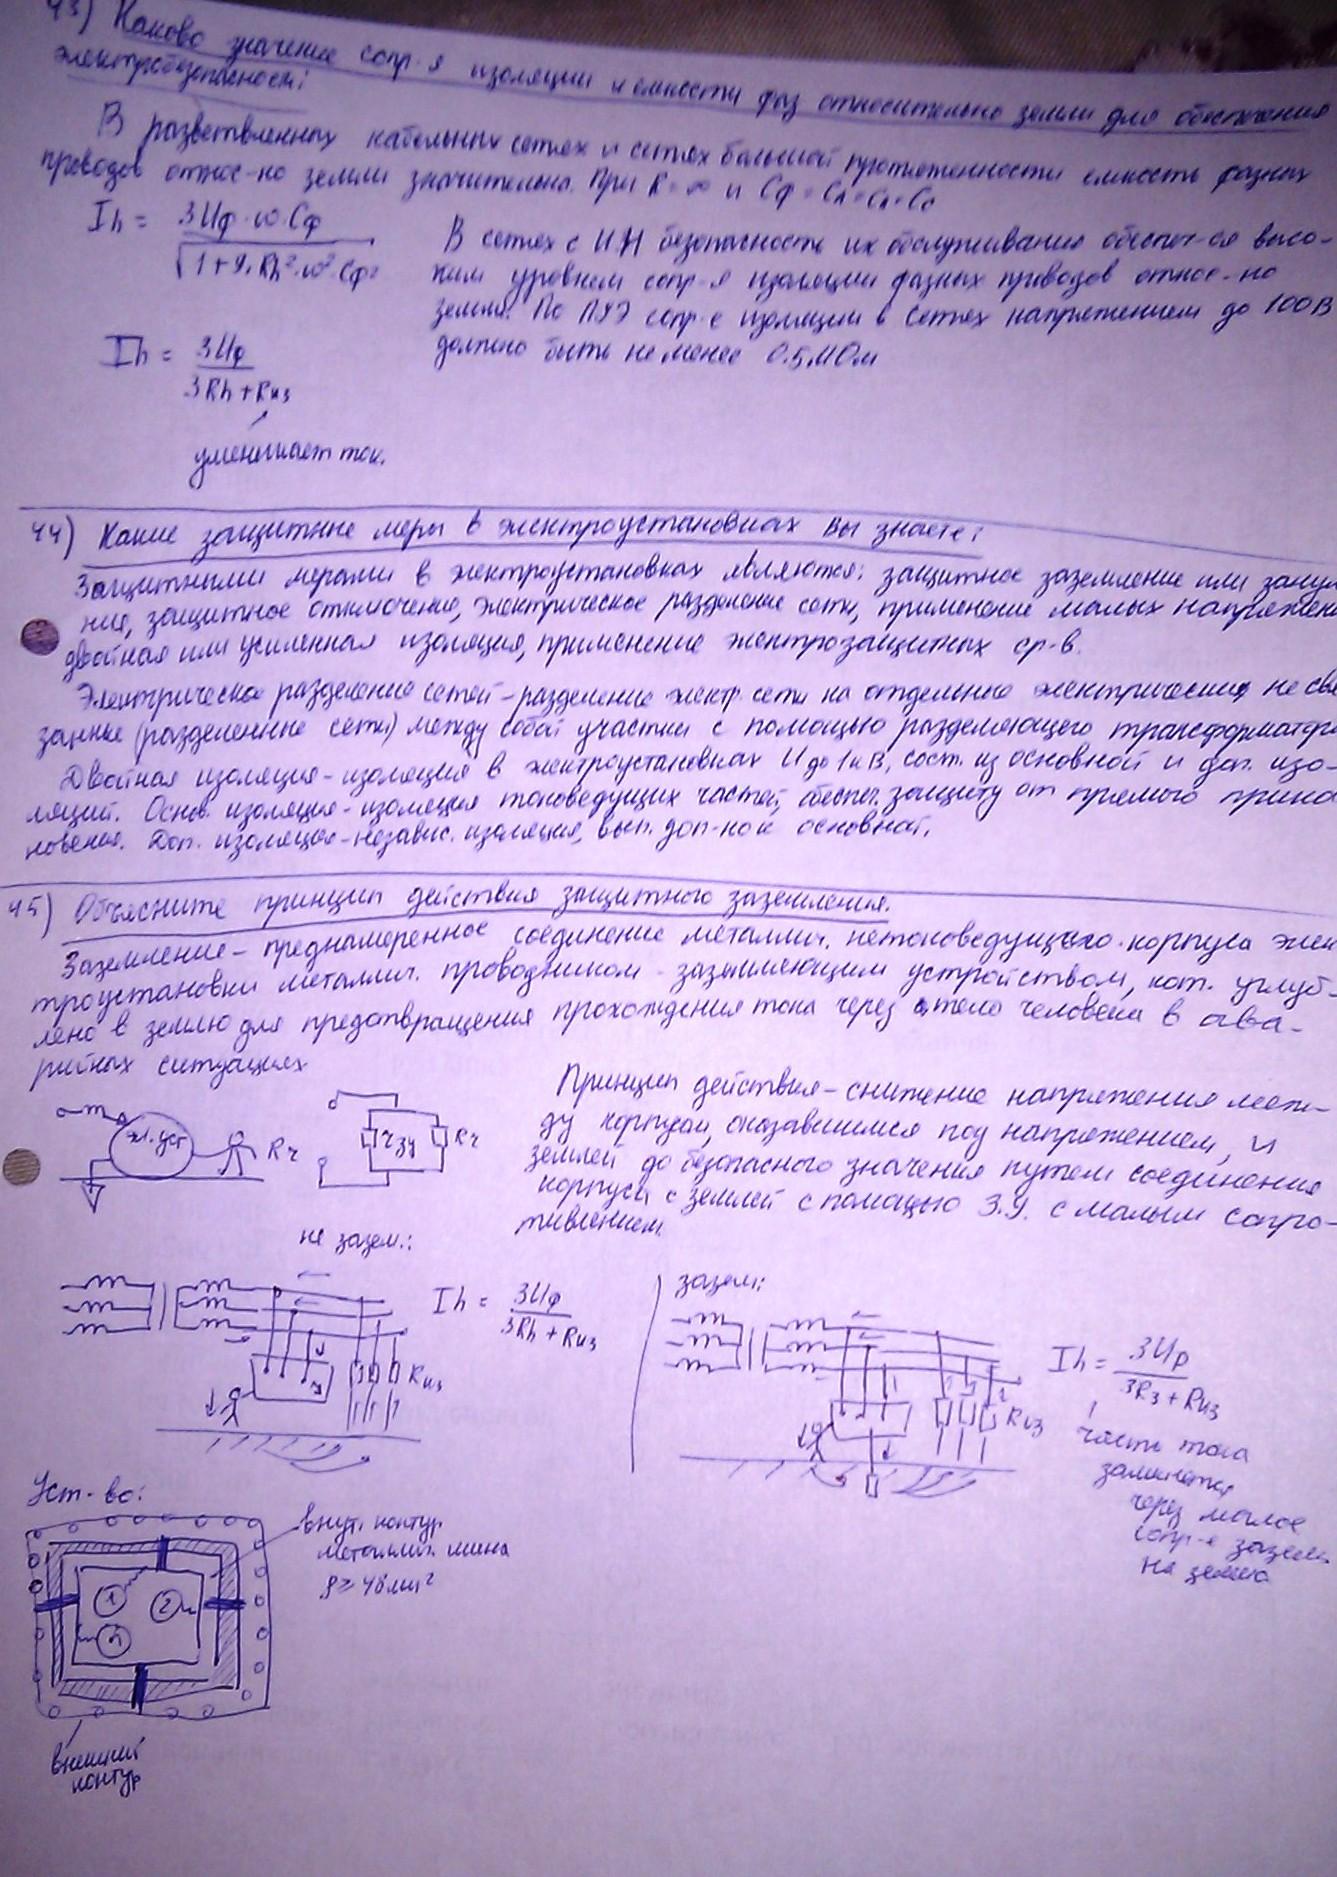 43) Каково значение сопр-я изоляции и емкости фаз относительно земли для обеспечения
электробезопасности?
В разветвленных кабельных сетях и сетях большой протяженности емкость фазных
проводов относ-но земли значительна. При R = ∞ и Cф = CA = CB = CC
Ih = 3Uф·ω·Cф / √1+9·Rh²·ω²·Cф²
В сетях с ИН безопасность их обслуживания обеспеч-ся высо-
ким уровнем сопр-я изоляции фазных проводов относ-но
земли. По ПУЭ сопр-е изоляции в сетях напряжением до 100В
должно быть не менее 0.5 МОм
Ih = 3Uф / 3Rh + Rиз
уменьшает ток.
44) Какие защитные меры в электроустановках вы знаете?
Защитными мерами в электроустановках являются: защитное заземление или зануле
ния, защитное отключение, электрическое разделение сети, применение малых напряжени
двойная или усиленная изоляция, применение электрозащитных ср-в.
Электрическое разделение сетей - разделение электр. сети на отдельные электрически не свя
занные (разделенные сети) между собой участки с помощью разделяющего трансформатора
Двойная изоляция - изоляция в электроустановках U до 1кВ, сост. из основной и доп. изо-
ляций. Основ. изоляция - изоляция токоведущих частей, обеспеч. защиту от прямого прико
новения. Доп. изоляция - независ. изоляция, вып. доп-но к основной.
45) Объясните принцип действия защитного заземления.
Заземление - преднамеренное соединение металлич. нетоковедущего корпуса элек
троустановки металлич. проводником - заземляющим устройством, кот. углуб-
лено в землю для предотвращения прохождения тока через тело человека в ава-
рийных ситуациях
Принцип действия - снижение напряжения меж-
ду корпусом, оказавшимся под напряжением, и
землей до безопасного значения путем соединения
корпуса с землей с помощью З.У. с малым сопро-
тивлением.
эл. уст
Rч
rзу
Rч
не зазем.:
Ih = 3Uф / 3Rh + Rиз
Rиз
зазем:
Ih = 3Uф / 3Rз + Rиз
Rиз
часть тока
замкнется
через малое
сопр-е зазем.
на землю
Уст-во:
внут. контур
металлич. шина
S ≥ 48мм²
1
2
n
внешний
контур